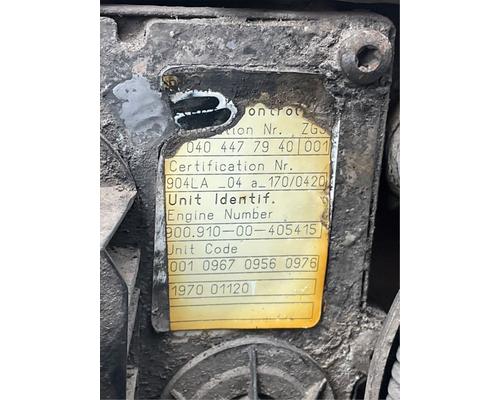 ontrol
tion Nr. ZGS
040 447 79 40 001
Certification Nr.
904LA_04 a_170/0420
Unit Identif.
Engine Number
900.910-00-405415
Unit Code
001 0967 0956 0976
1970 01120